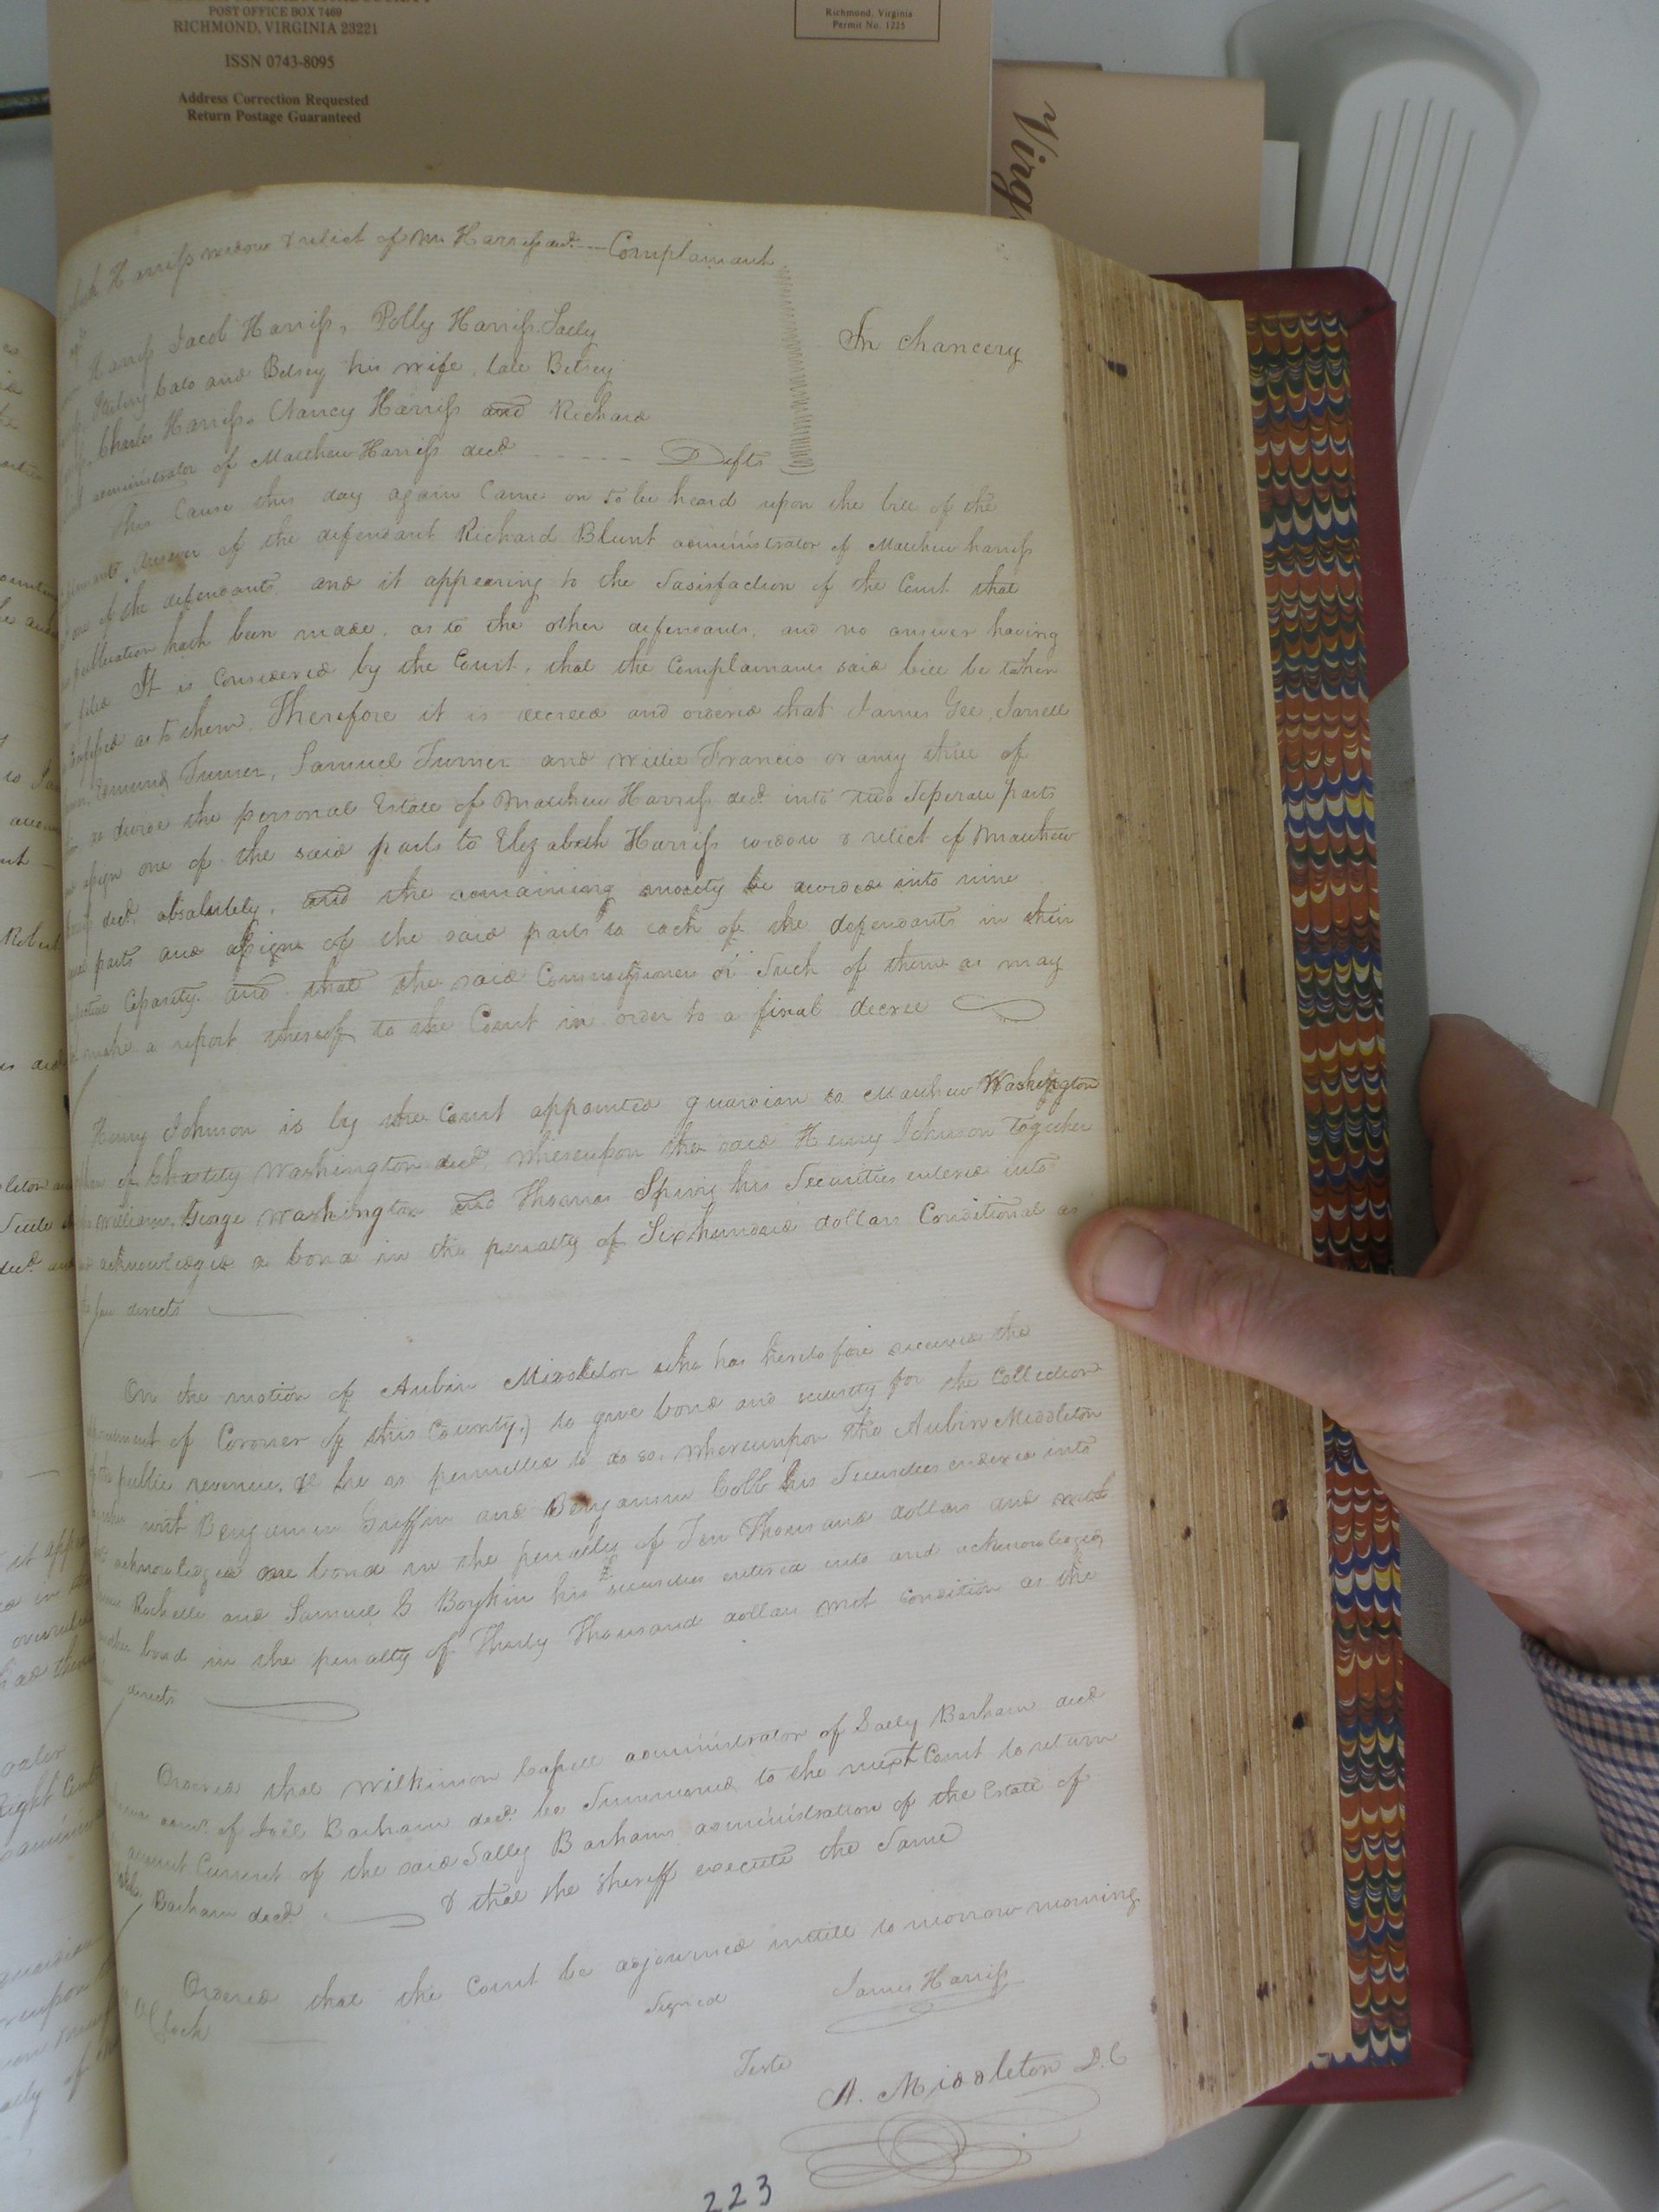 POST OFFICE BOX 7469
RICHMOND, VIRGINIA 23221
ISSN 0743-8095
Address Correction Requested
Return Postage Guaranteed
Richmond, Virginia
Permit No. 1225
Virg
Harriss widow & relict of M. Harriss decd. Complainant
Harriss Jacob Harriss, Polly Harriss, Sally
In Chancery
and Betsey his wife, late Betsey
Charles Harriss, Nancy Harriss and Richard
administrator of Matthew Harriss decd Defts
This Cause this day again Came on to be heard upon the bill of the
answer of the defendant Richard Blunt administrator of Matthew harriss
one of the defendants, and it appearing to the Sasisfaction of the Court that
publication hath been made, as to the other defendants, and no answer having
filed It is Considered by the Court, that the Complainants said bill be taken
as to them. Therefore it is decreed and ordered that James Gee, Jarrell
Edmund Turner, Samuel Turner and Willie Francis or any three of
do divide the personal Estate of Matthew Harriss decd. into two Seperate parts
assign one of the said parts to Elizabeth Harriss widow & relict of Matthew
decd. absolutely, and the remaining moiety be divided into nine
parts and assign of the said parts to each of the defendants in their
Capasity. and that the said Commissioners or Such of them as may
make a report thereof to the Court in order to a final decree
Henry Johnson is by the Court appointed guardian to Matthew Washington
of Chastity Washington decd. whereupon the said Henry Johnson Together
Williams, George Washington and Thomas Spivy his Securities entered into
acknowledged a bond in the penalty of Six hundred dollars Conditional as
the law directs
On the motion of Aubin Middleton who has heretofore received the
of Coroner of this County,) to give bond and security for the Collection
of the public revenue, & he is permitted to do so. Whereupon the Aubin Middleton
with Benjamin Griffin and Benjamin Cobb his Securities entered into
acknowledged one bond in the penalty of Ten Thousand dollars and with
Rochelle and Samuel B Boykin his securities entered into and acknowledged
bond in the penalty of Thirty Thousand dollars with Condition as the
directs
Ordered that Wilkinson Capell administrator of Sally Barham decd
admr. of Joel Barham decd. be Summoned to the next Court to return
account Current of the said Sally Barhams administration of the Estate of
Barham decd. & that the Sheriff execute the Same
Ordered that the Court be adjourned untill to morrow morning
Clock
Signed James Harriss
Teste
A. Middleton D.C
223